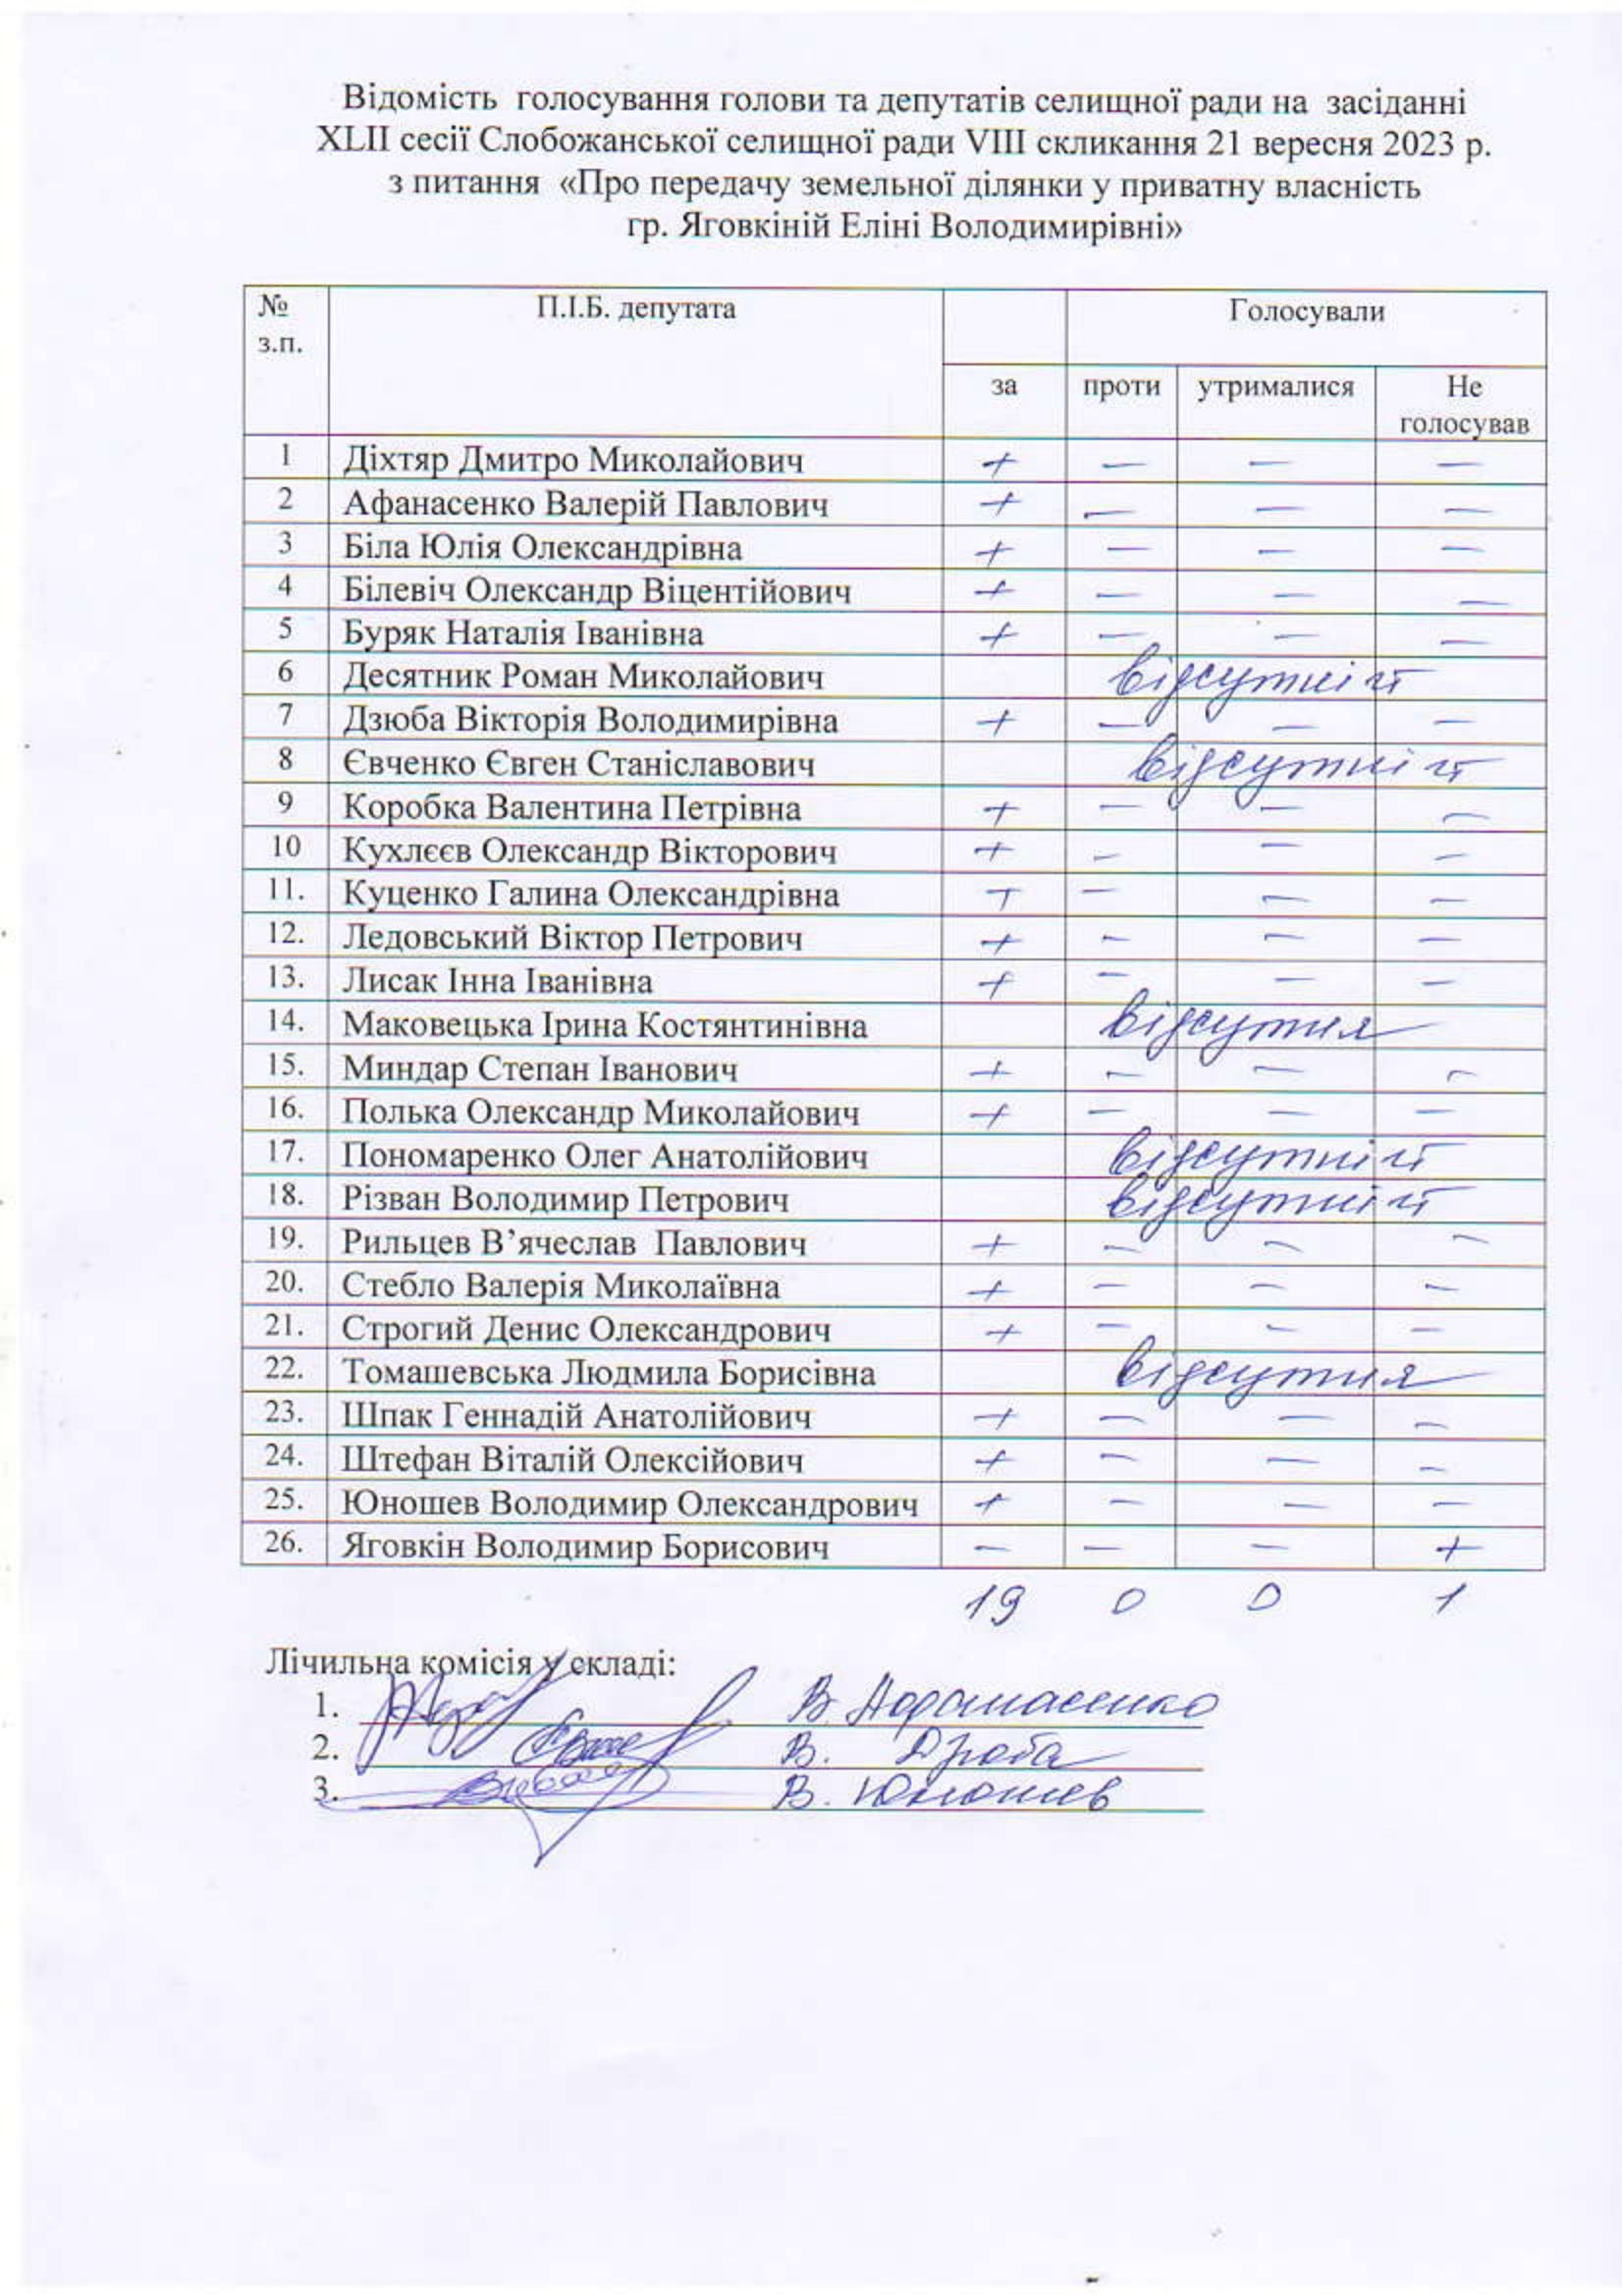 Відомість голосування голови та депутатів селищної ради на засіданні
XLII сесії Слобожанської селищної ради VIII скликання 21 вересня 2023 р.
з питання «Про передачу земельної ділянки у приватну власність
гр. Яговкіній Еліні Володимирівні»
№ з.п. П.І.Б. депутата Голосували
за проти утрималися Не голосував
1 Діхтяр Дмитро Миколайович + — — —
2 Афанасенко Валерій Павлович + — — —
3 Біла Юлія Олександрівна + — — —
4 Білевіч Олександр Віцентійович + — — —
5 Буряк Наталія Іванівна + — — —
6 Десятник Роман Миколайович відсутній
7 Дзюба Вікторія Володимирівна + — — —
8 Євченко Євген Станіславович відсутній
9 Коробка Валентина Петрівна + — — —
10 Кухлєєв Олександр Вікторович + — — —
11. Куценко Галина Олександрівна + — — —
12. Ледовський Віктор Петрович + — — —
13. Лисак Інна Іванівна + — — —
14. Маковецька Ірина Костянтинівна відсутня
15. Миндар Степан Іванович + — — —
16. Полька Олександр Миколайович + — — —
17. Пономаренко Олег Анатолійович відсутній
18. Різван Володимир Петрович відсутній
19. Рильцев В’ячеслав Павлович + — — —
20. Стебло Валерія Миколаївна + — — —
21. Строгий Денис Олександрович + — — —
22. Томашевська Людмила Борисівна відсутня
23. Шпак Геннадій Анатолійович + — — —
24. Штефан Віталій Олексійович + — — —
25. Юношев Володимир Олександрович + — — —
26. Яговкін Володимир Борисович — — — +
19 0 0 1
Лічильна комісія у складі:
1. В. Афанасенко
2. В. Дзюба
3. В. Юношев